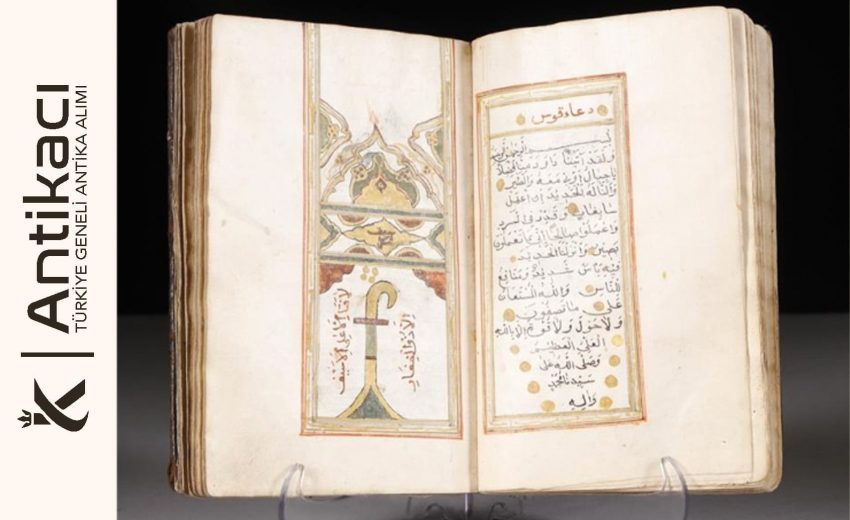 Antikacı
TÜRKİYE GENELİ ANTİKA ALIMI
K
دعاء قوس
بسم الله الرحمن الرحيم
ولقد اتينا داود منا فضلا
يا جبال اوبي معه والطير
والناله الحديد ان اعمل
سابغات وقدر في السرد
واعملوا صالحا اني بما تعملون
بصير وانزلنا الحديد
فيه باس شديد ومنافع
للناس والله المستعان
على ما تصفون
ولا حول ولا قوة الا بالله
العلي العظيم
وصلى الله على
سيدنا محمد
واله
الا ذو الفقار
لا فتا الا علي لا سيف